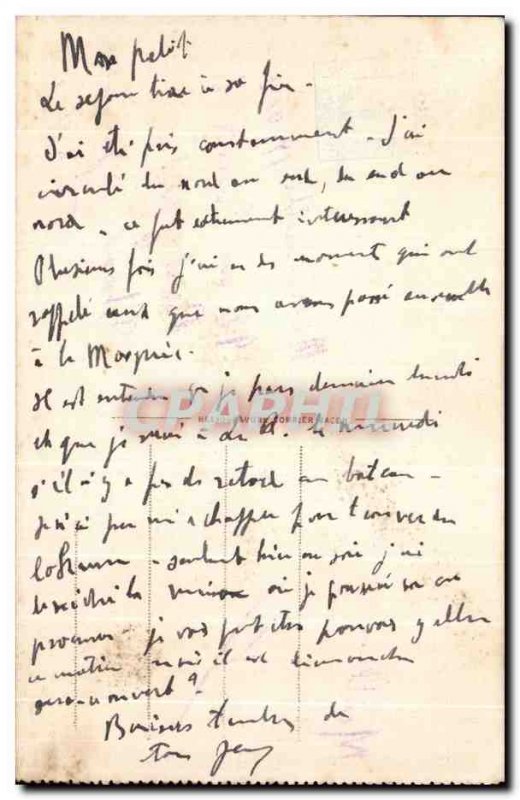 Mon petit
Le séjour tire à sa fin -
J'ai été pris constamment - J'ai
circulé du nord au sud, du sud au
nord - ce fut extrement intéressant
Plusieurs fois j'ai eu des moment qui ont
rappelé ceux que nous avons passé ensemble
à la
Il est entendu que je pars demain lundi
et que je serai à le mercredi
s'il n'y a pas de retard au bateau -
Je n'ai pu m'échapper pour trouver du
seulement hier au soir j'ai
la maison où je pourrai
procurer - je vais peut etre pouvoir y aller
ce matin - mais il est dimanche
sera-ce ouvert ?
Baisers tendres de
ton
CPAPHIL